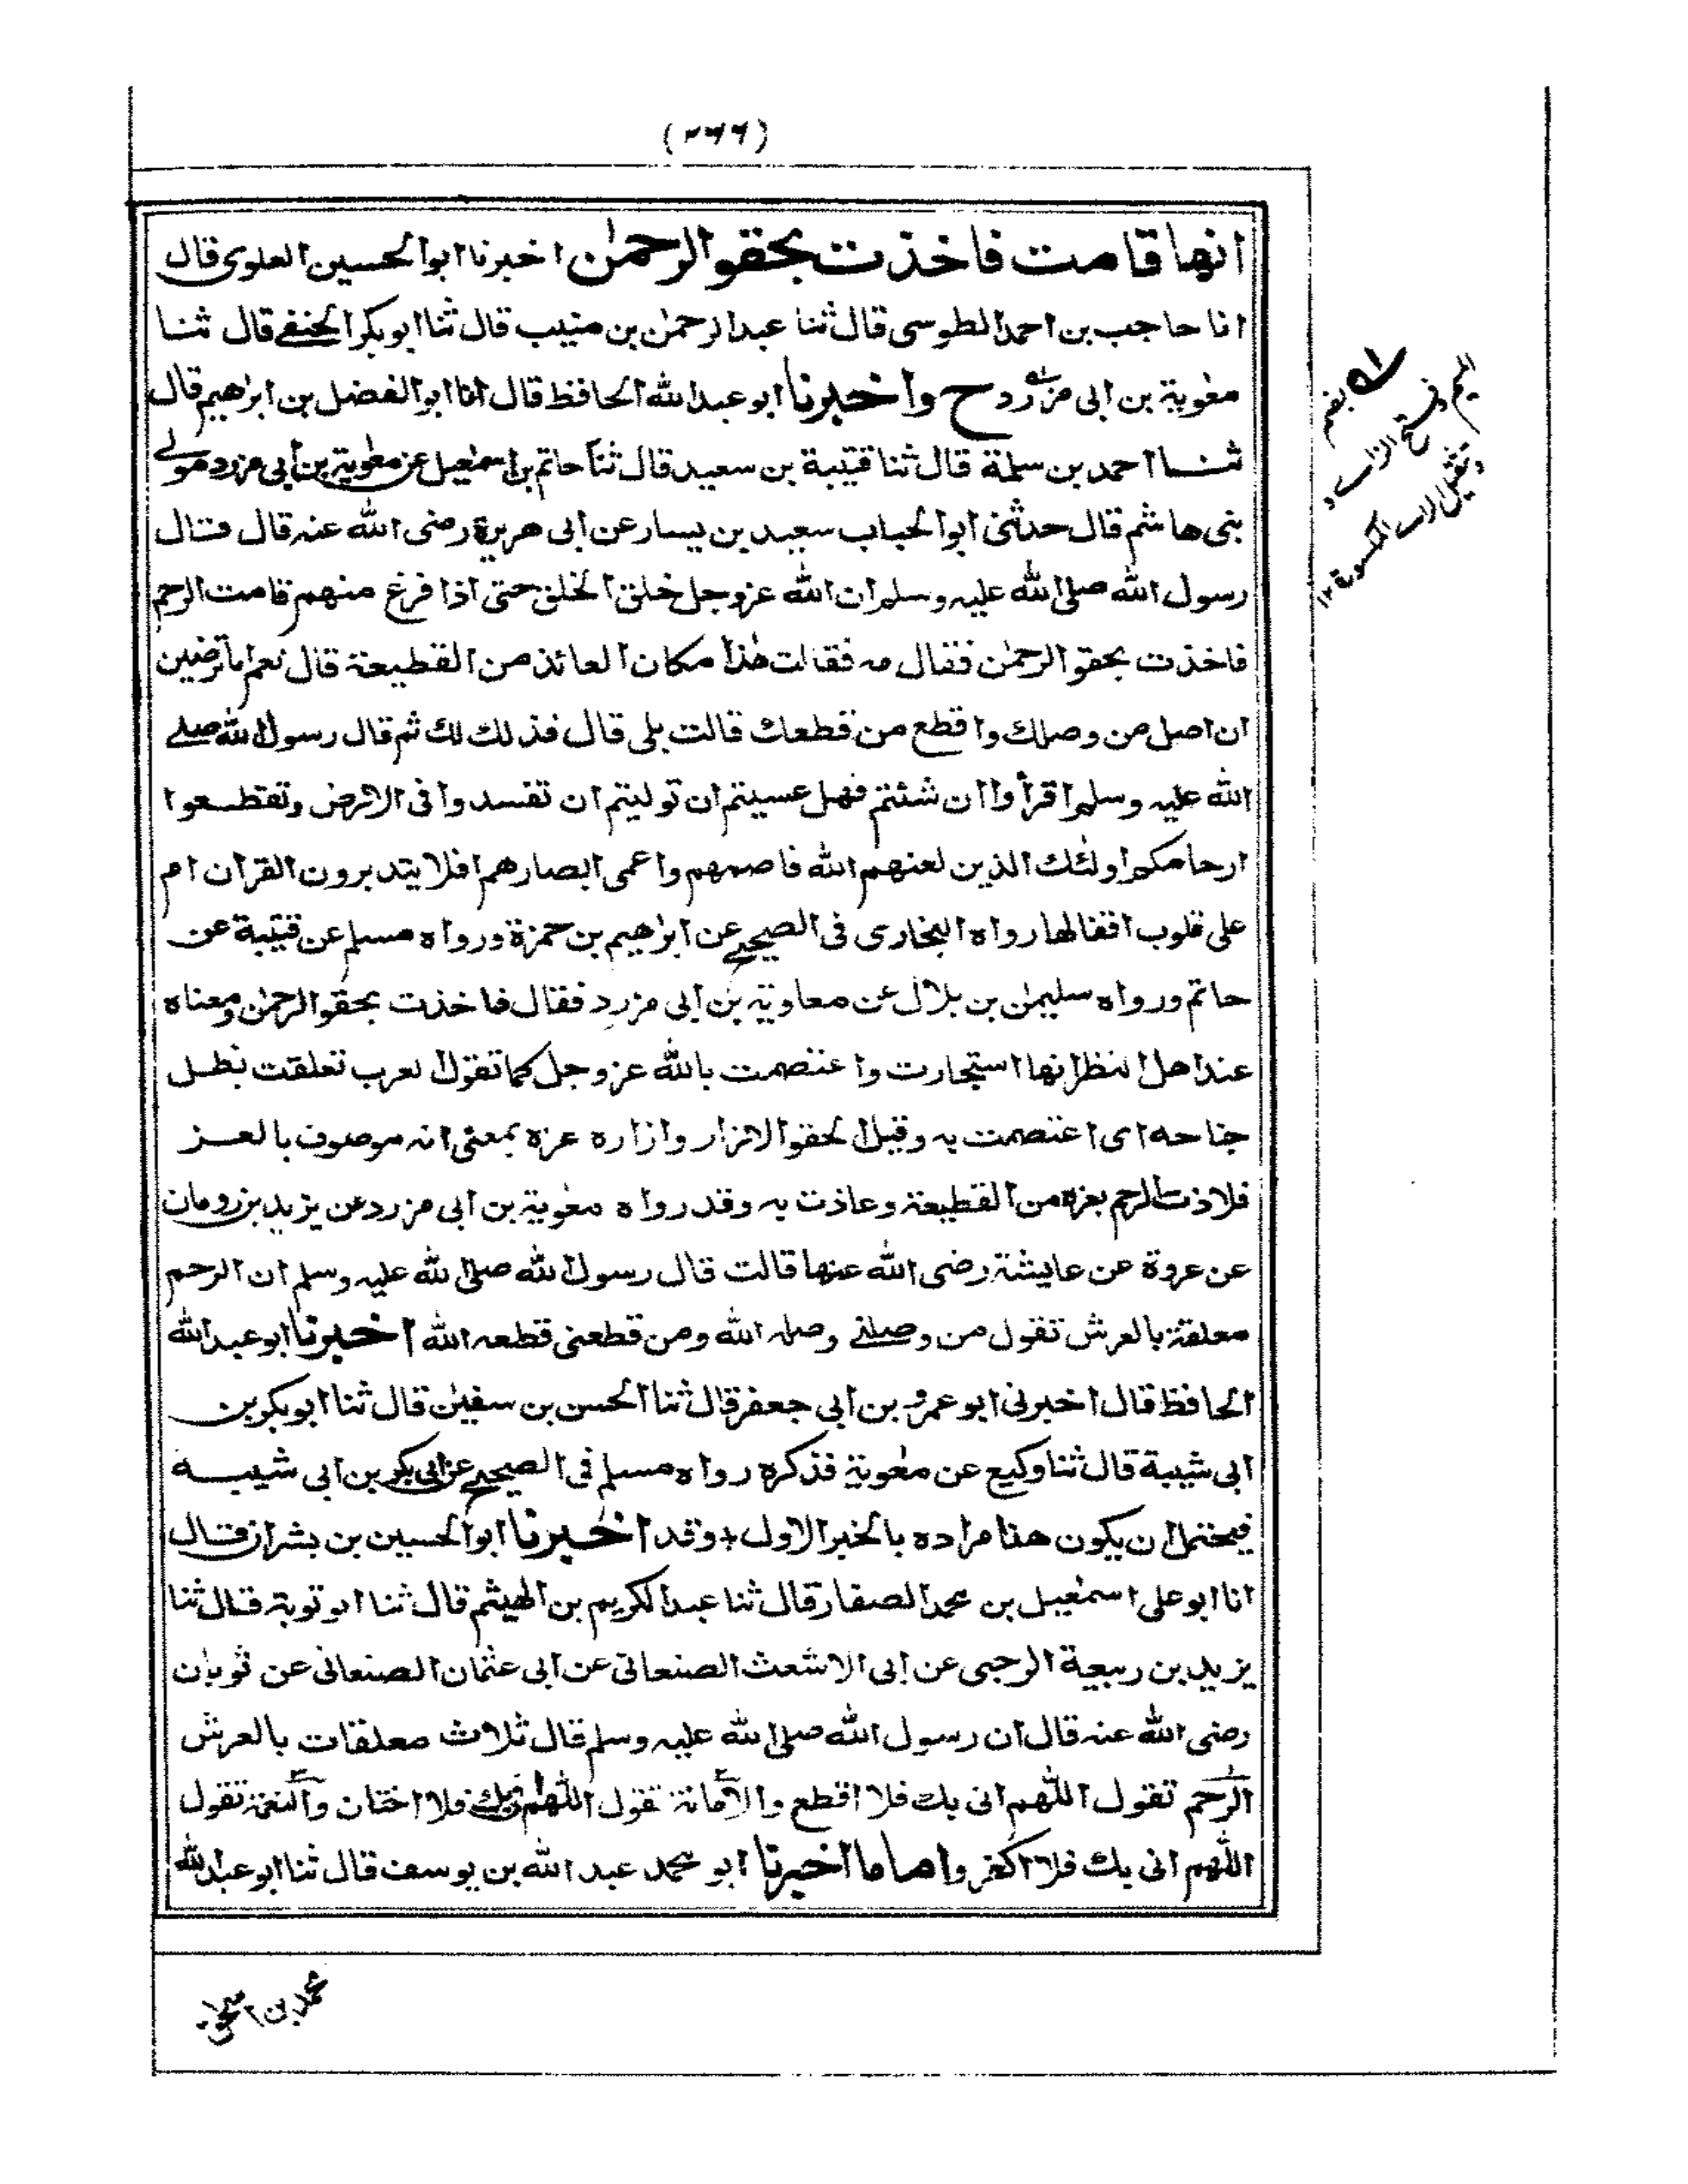 (٢٦٦)
انها قامت فاخذت بحقو الرحمٰن اخبرنا ابو الحسين العلوى قال
انا حاجب بن احمد الطوسى قال ثنا عبد الرحمٰن بن منيب قال ثنا ابو بكر الحنفے قال ثنا
معٰوية بن ابى مزرد ح واخبرنا ابو عبد الله الحافظ قال انا ابو الفضل بن ابرٰهيم قال
ثنا احمد بن سلمة قال ثنا قتيبة بن سعيد قال ثنا حاتم بن اسمٰعيل عن معٰوية بن ابى مزرد مولے
بنى هاشم قال حدثنى ابو الحباب سعيد بن يسار عن ابى هريرة رضى الله عنه قال قال
رسول الله صلى الله عليه وسلم ان الله عز وجل خلق الخلق حتى اذا فرغ منهم قامت الرحم
فاخذت بحقو الرحمٰن فقال مه فقالت هٰذا مكان العائذ من القطيعة قال نعم اما ترضين
ان اصل من وصلك واقطع من قطعك قالت بلى قال فذلك لك ثم قال رسول الله صلے
الله عليه وسلم اقرأوا ان شئتم فهل عسيتم ان توليتم ان تفسدوا فى الارض وتقطعوا
ارحامكم اولٰئك الذين لعنهم الله فاصمهم واعمى ابصارهم افلا يتدبرون القرآن ام
على قلوب اقفالها رواه البخارى فى الصحيح عن ابرٰهيم بن حمزة ورواه مسلم عن قتيبة عن
حاتم ورواه سليمٰن بن بلال عن معاوية بن ابى مزرد فقال فاخذت بحقو الرحمٰن ومعناه
عند اهل النظر انها استجارت واعتصمت بالله عز وجل كما تقول العرب تعلقت بظل
جناحه اى اعتصمت به وقيل الحقو الازار وازاره عزه بمعنى انه موصوف بالعز
فلاذت الرحم بعزه من القطيعة وعاذت به وقد رواه معٰوية بن ابى مزرد عن يزيد بن رومان
عن عروة عن عايشة رضى الله عنها قالت قال رسول الله صلى الله عليه وسلم ان الرحم
معلقة بالعرش تقول من وصلنے وصله الله ومن قطعنى قطعه الله اخبرنا ابو عبد الله
الحافظ قال اخبرنى ابو عمرو بن ابى جعفر قال ثنا الحسن بن سفيٰن قال ثنا ابو بكر بن
ابى شيبة قال ثنا وكيع عن معٰوية فذكره رواه مسلم فى الصحيح عن ابى بكر بن ابى شيبه
فيحتمل ان يكون هذا مراده بالخبر الاول + وقد اخبرنا ابو الحسين بن بشران قال
انا ابو على اسمٰعيل بن محمد الصفار قال ثنا عبد الكريم بن الهيثم قال ثنا ابو توبة قال ثنا
يزيد بن ربيعة الرحبى عن ابى الاشعث الصنعانى عن ابى عثمان الصنعانى عن ثوبان
رضى الله عنه قال ان رسول الله صلى الله عليه وسلم قال ثلاث معلقات بالعرش
الرحم تقول اللّٰهم انى بك فلا اقطع والامانة تقول اللّٰهم انى بك فلا اختان والنعمة تقول
اللّٰهم انى بك فلا اكفر واما ما اخبرنا ابو محمد عبد الله بن يوسف قال ثنا ابو عبد الله
بضم
الميم وفتح الزاے و
تثقيل الراے المكسورة ١٢
محمد بن